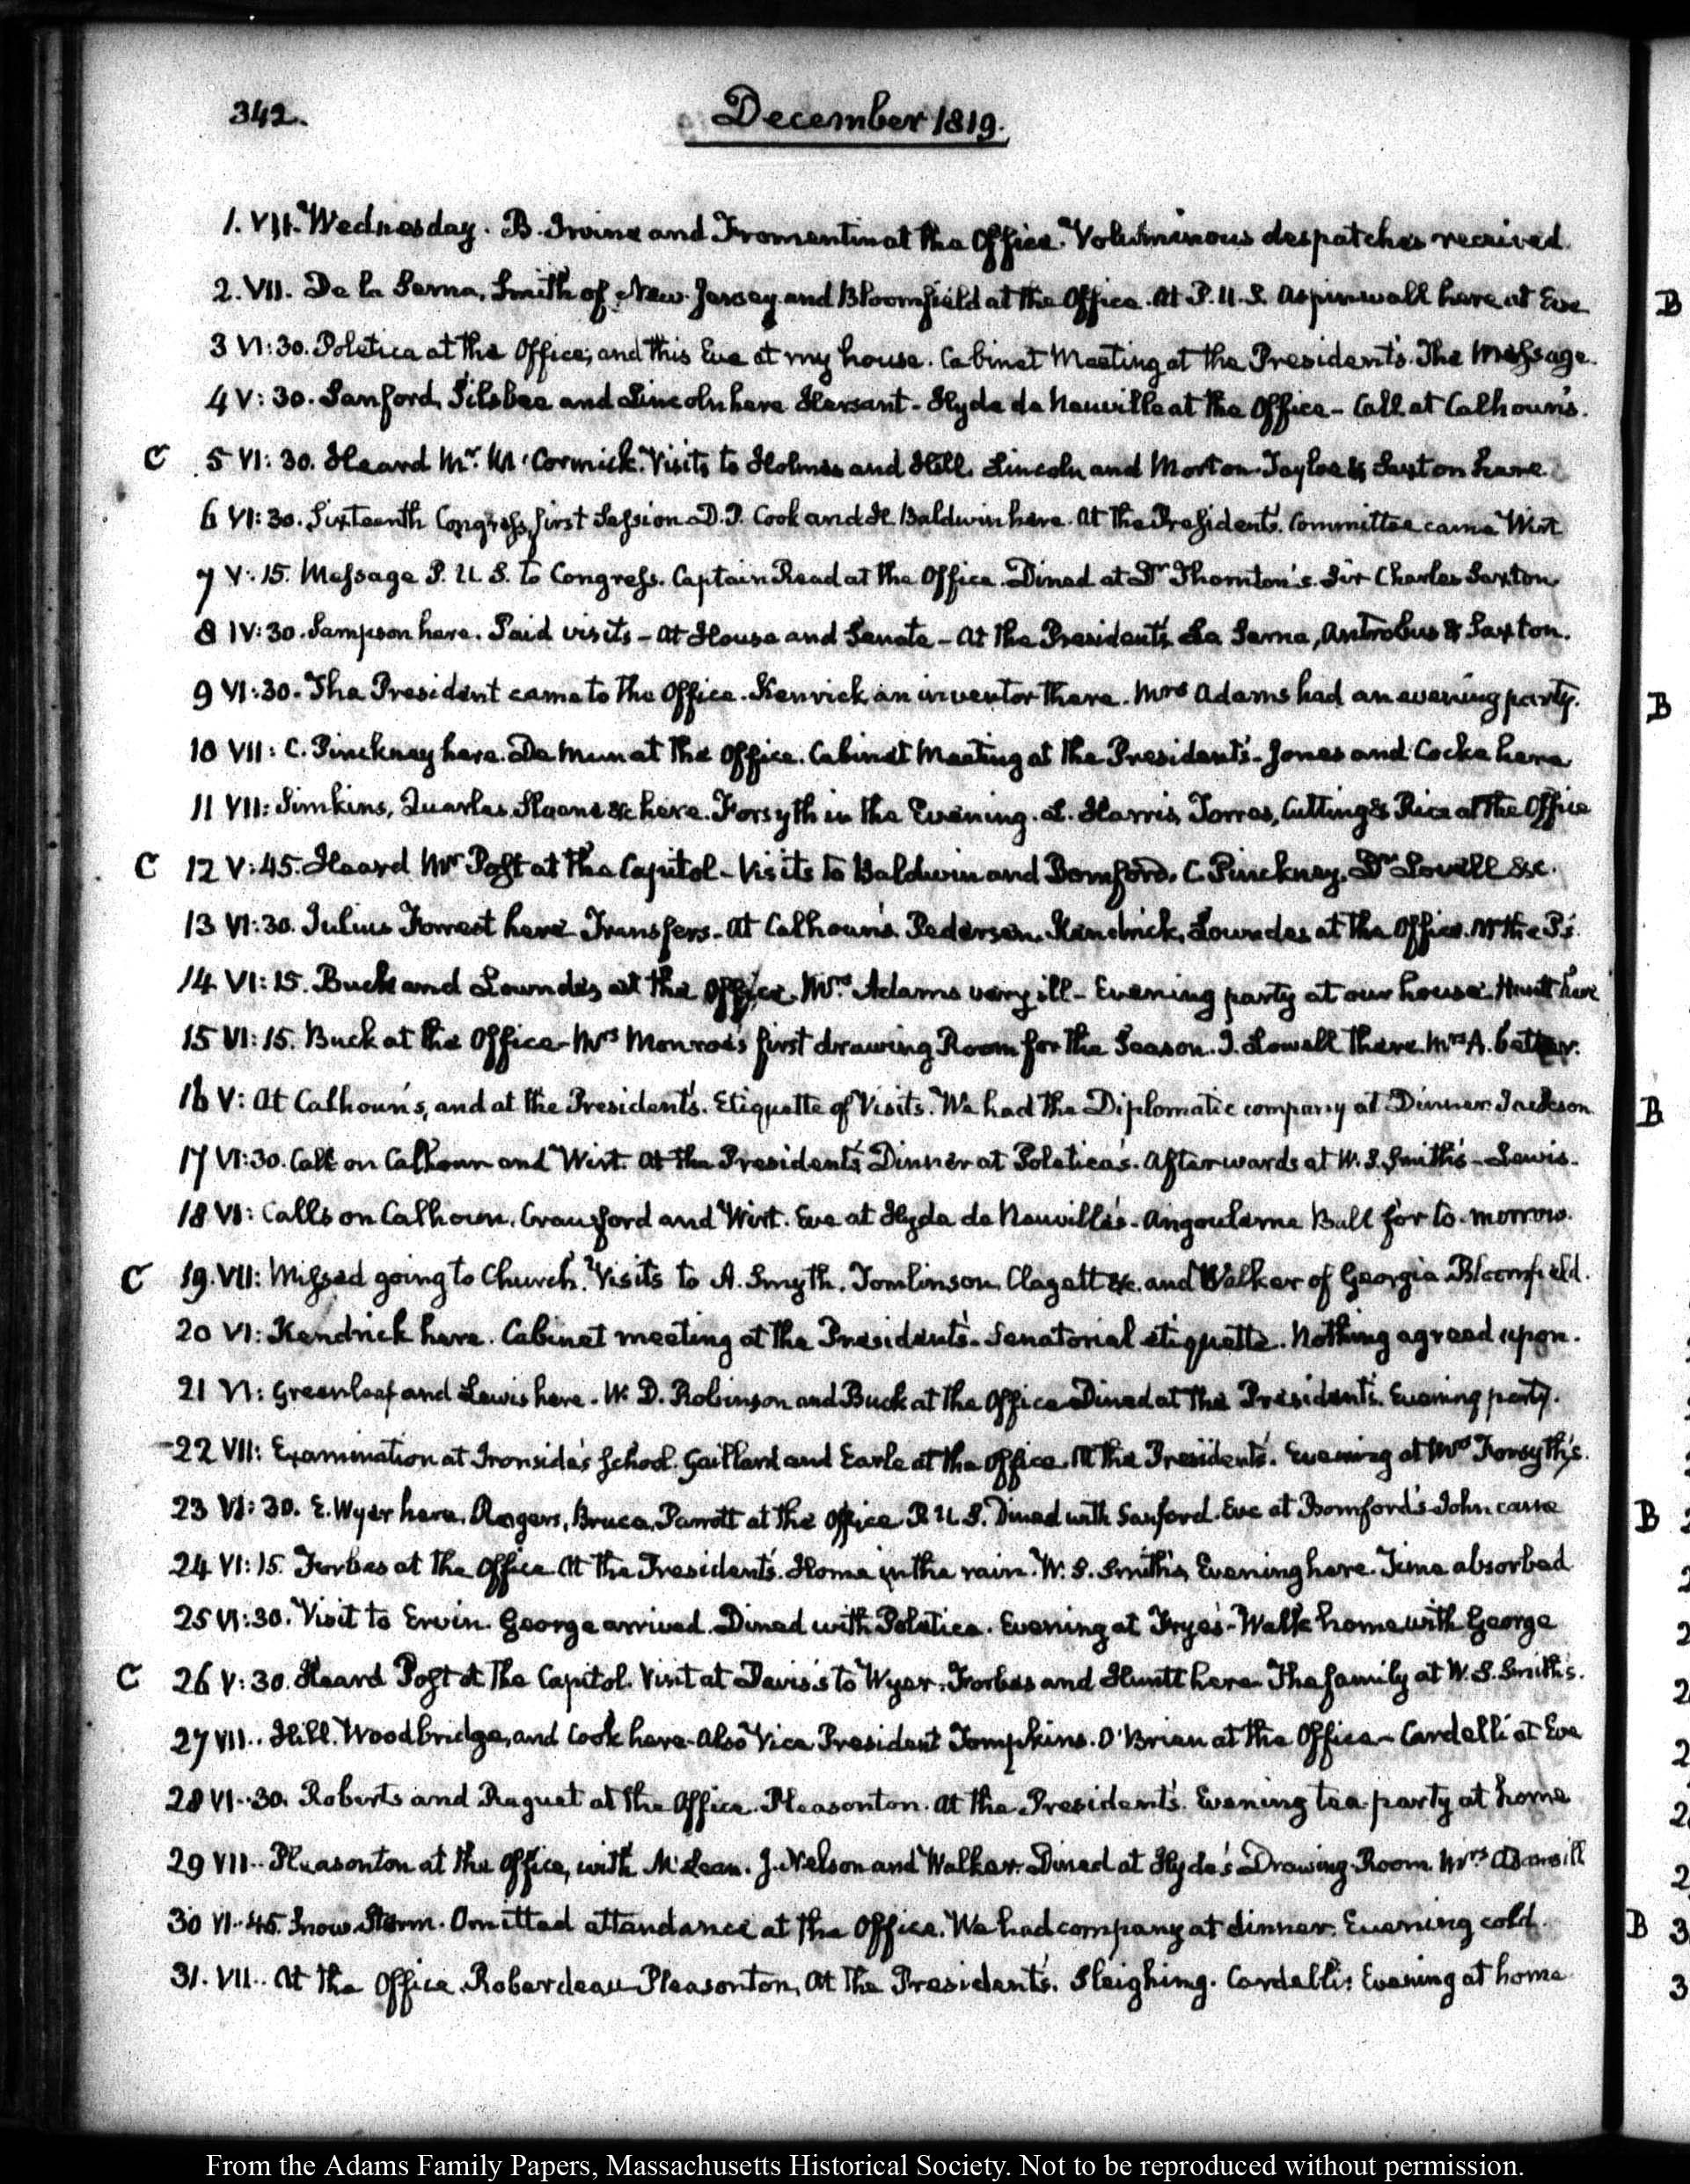 342.
December 1819.
1. VII. Wednesday. B. Irvine and Fromentin at the Office. Voluminous despatches received.
2. VII. De la Serna, Smith of New-Jersey and Bloomfield at the Office. At P. U. S. Aspinwall here at Eve
3 VI:30. Poletica at the Office; and this Eve at my house. Cabinet Meeting at the President's. The Message.
4 V:30. Sanford, Silsbee and Lincoln here Hersant - Hyde de Neuville at the Office - Call at Calhoun's.
C 5 VI:30. Heard Mr. McCormick. Visits to Holmes and Hill. Lincoln and Morton. Tayloe & Saxton here.
6 VI:30. Sixteenth Congress, first Session. D. P. Cook and H. Baldwin here. At the President's. Committee came Wirt
7 V:15. Message P. U. S. to Congress. Captain Read at the Office. Dined at Dr. Thornton's. Sir Charles Saxton.
8 IV:30. Sampson here. Paid visits - At House and Senate - At the President's. La Serna, Antrobus & Saxton.
9 VI:30. The President came to the Office. Kenrick an inventor there. Mrs Adams had an evening party.
10 VII: C. Pinckney here. De Mun at the Office. Cabinet Meeting at the President's. Jones and Cocke here
11 VII: Simkins, Quarles, Sloane &c here. Forsyth in the Evening. L. Harris, Torres, Cutting & Rice at the Office
C 12 V:45. Heard Mr Post at the Capitol - Visits to Baldwin and Bomford, C. Pinckney, Dr Lovell &c.
13 VI:30. Julius Forrest here Transfers. At Calhoun's. Pedersen, Kendrick, Lowndes at the Office. At the P's.
14 VI:15. Buck and Lowndes at the Office. Mrs. Adams very ill - Evening party at our house. Huntt here
15 VI:15. Buck at the Office - Mrs Monroe's first drawing Room for the Season. J. Lowell there. Mrs A. better.
16 V: At Calhoun's, and at the President's. Etiquette of Visits. We had the Diplomatic company at Dinner. Jackson
17 VI:30. Call on Calhoun and Wirt. At the President's. Dinner at Poletica's. Afterwards at W. S. Smith's - Lewis.
18 VI: Calls on Calhoun, Crawford and Wirt. Eve at Hyde de Neuville's. Angouleme Ball for to-morrow.
C 19. VII: Missed going to Church. Visits to A. Smyth, Tomlinson, Clagett &c. and Walker of Georgia. Bloomfield.
20 VI: Kendrick here. Cabinet meeting at the President's. Senatorial etiquette. Nothing agreed upon.
21 VI: Greenleaf and Lewis here. W. D. Robinson and Buck at the Office. Dined at the President's. Evening party.
22 VII: Examination at Ironside's School. Gaillard and Earle at the Office. At the President's. Evening at Mrs Forsyth's.
23 VI:30. E. Wyer here. Rogers, Bruce, Parrott at the Office P. U. S. Dined with Sanford. Eve at Bomford's. John came
24 VI:15. Forbes at the Office. At the President's. Home in the rain. W. S. Smith's, Evening here. Time absorbed
25 VI:30. Visit to Ervin. George arrived. Dined with Poletica. Evening at Frye's - Walk home with George
C 26 V:30. Heard Post at the Capitol. Visit at Davis's to Wyer. Forbes and Huntt here. The family at W. S. Smith's.
27 VII.. Hill, Woodbridge, and Cook here. Also Vice President Tompkins. O'Brien at the Office - Cardelli at Eve
28 VI..30. Roberts and Raguet at the Office. Pleasonton. At the President's. Evening tea-party at home
29 VII.. Pleasonton at the Office, with McLean. J. Nelson and Walker. Dined at Hyde's Drawing-Room. Mrs Adams ill
30 VI..45. Snow Storm. Omitted attendance at the Office. We had company at dinner. Evening cold.
31. VII.. At the Office. Roberdeau Pleasonton, At the President's. Sleighing. Cardelli. Evening at home
From the Adams Family Papers, Massachusetts Historical Society. Not to be reproduced without permission.